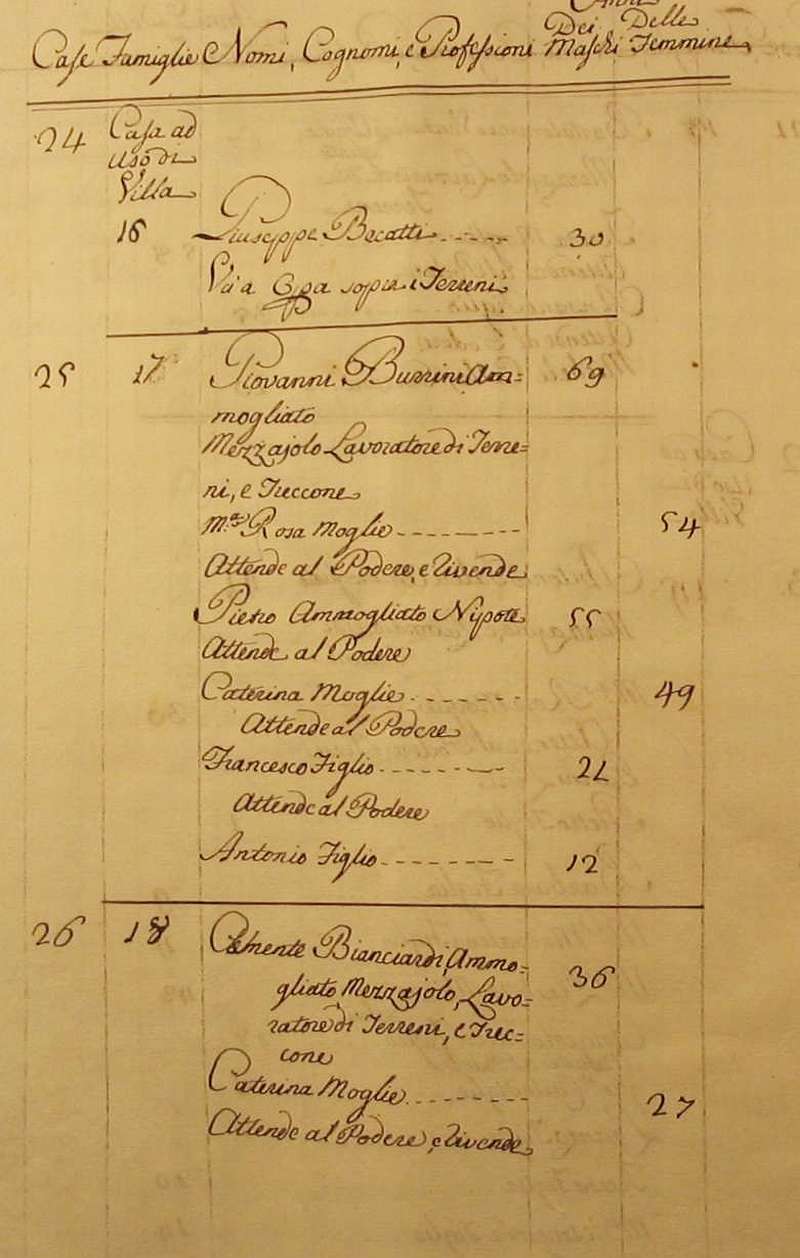 Anni
Dei Delle
Case Famiglie Nomi, Cognomi, e Professioni Maschi Femmine
24 Casa ad
uso di
Villa
16 Giuseppe Becatti 30
sopra i Terreni
25 17 Giovanni Burrini Am=
mogliato 69
Mezzajolo Lavoratore di Terre=
ni, e Treccone
M.a Rosa Moglie 54
Attende al Podere, e Rivende
Pietro Ammogliato Nipote 55
Attende al Podere
Caterina Moglie 49
Attende al Podere
Francesco Figlio 21
Attende al Podere
Antonio Figlio 12
26 18 Clemente Bianciardi, Ammo=
gliato, Mezzajolo, Lavo= 36
ratore di Terreni, e Trec=
cone
Caterina Moglie 27
Attende al Podere e Rivende